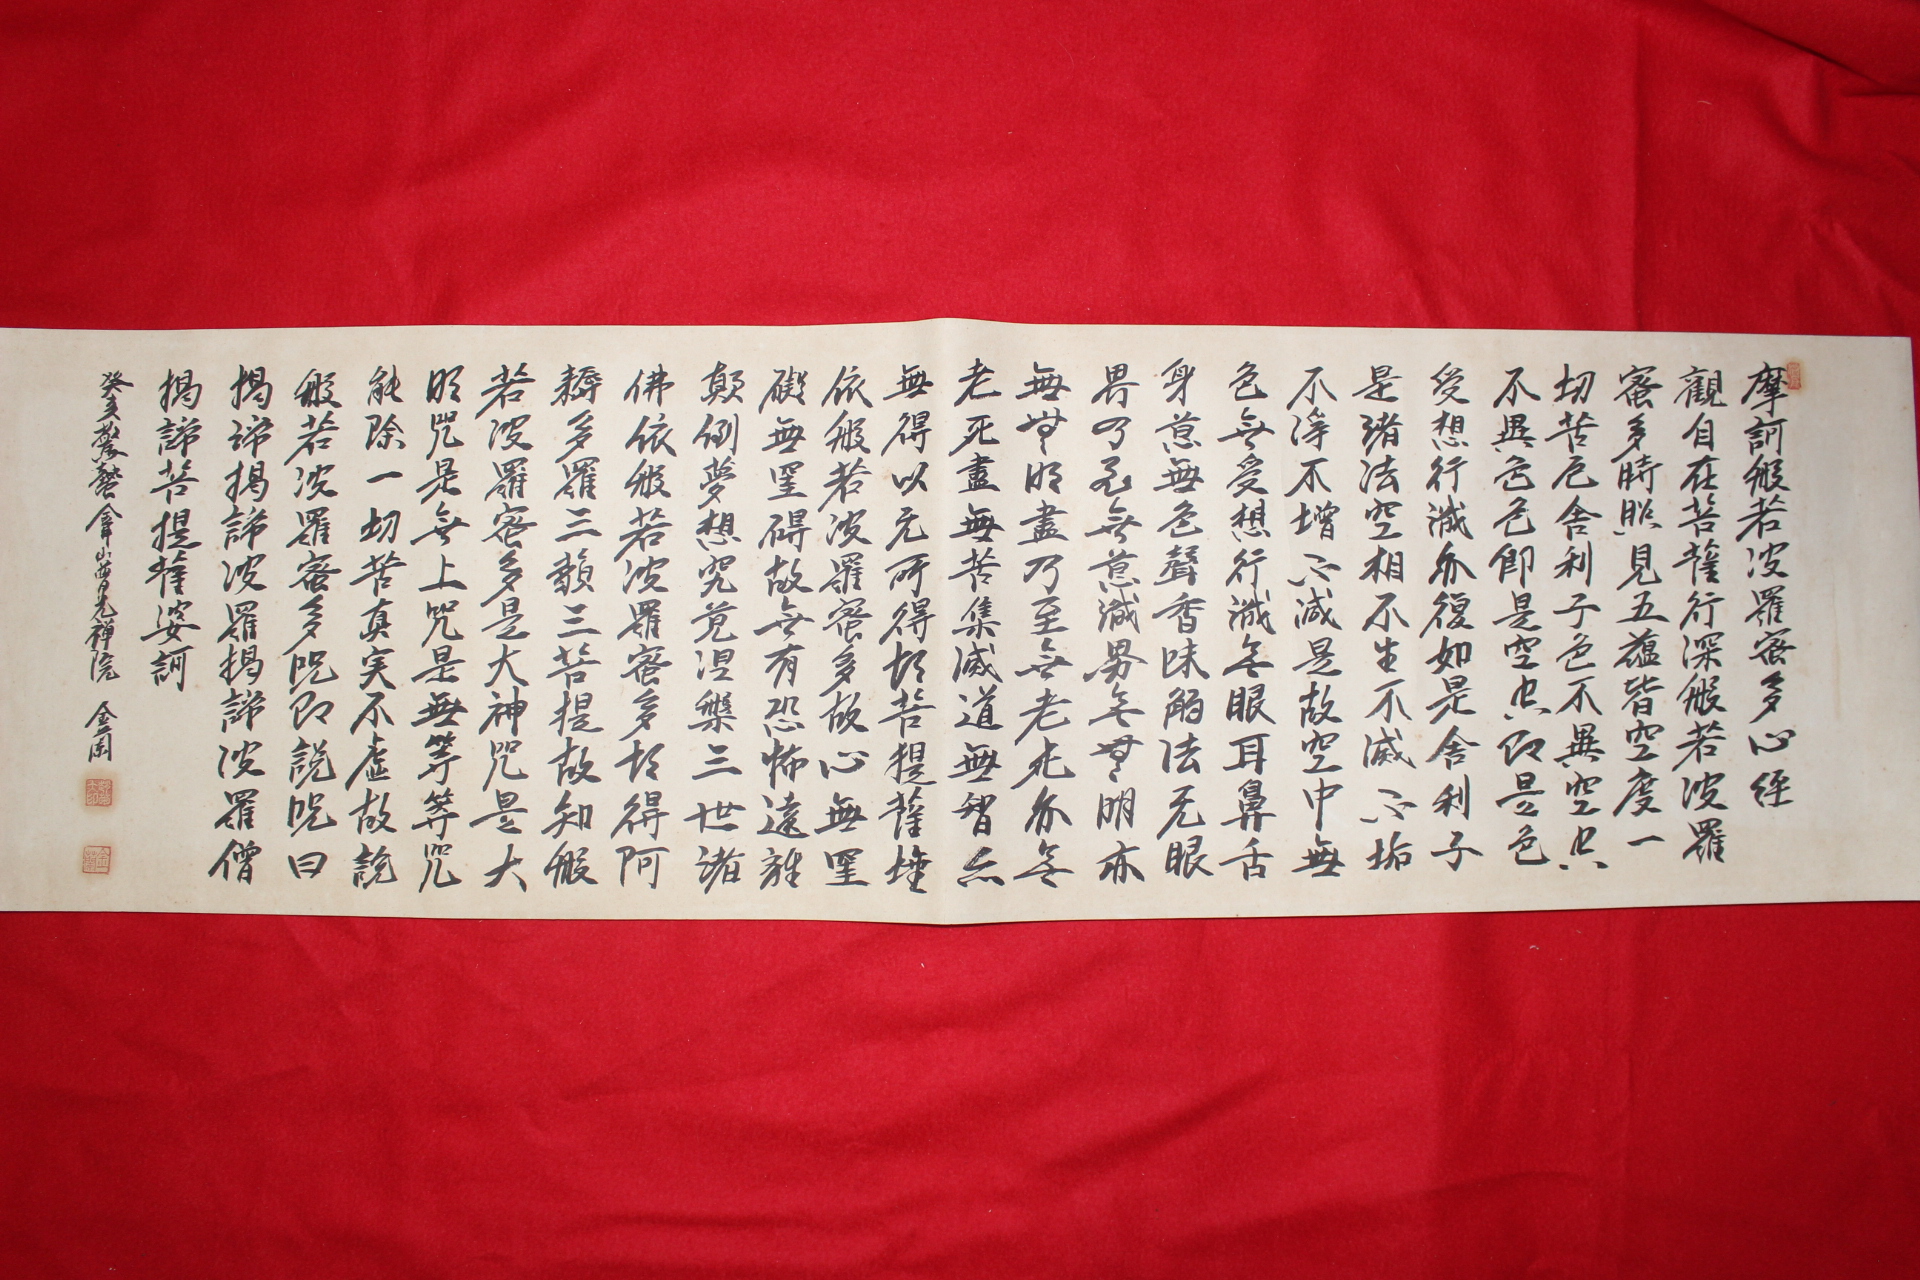 摩訶般若波羅蜜多心経
觀自在菩薩行深般若波羅
蜜多時照見五蘊皆空度一
切苦厄舍利子色不異空空
不異色色即是空空即是色
受想行識亦復如是舍利子
是諸法空相不生不滅不垢
不淨不增不減是故空中無
色無受想行識無眼耳鼻舌
身意無色聲香味觸法无眼
界乃至無意識界無無明亦
無無明盡乃至無老死亦無
老死盡無苦集滅道無智亦
無得以无所得故菩提薩埵
依般若波羅蜜多故心無罣
礙無罣碍故無有恐怖遠離
顛倒夢想究竟涅槃三世諸
佛依般若波羅蜜多故得阿
耨多羅三藐三菩提故知般
若波羅蜜多是大神咒是大
明咒是無上咒是無等等咒
能除一切苦真実不虛故說
般若波羅蜜多呪即說呪曰
揭諦揭諦波羅揭諦波羅僧
揭諦菩提薩婆訶
癸亥驚蟄 山夢光禅院 金園